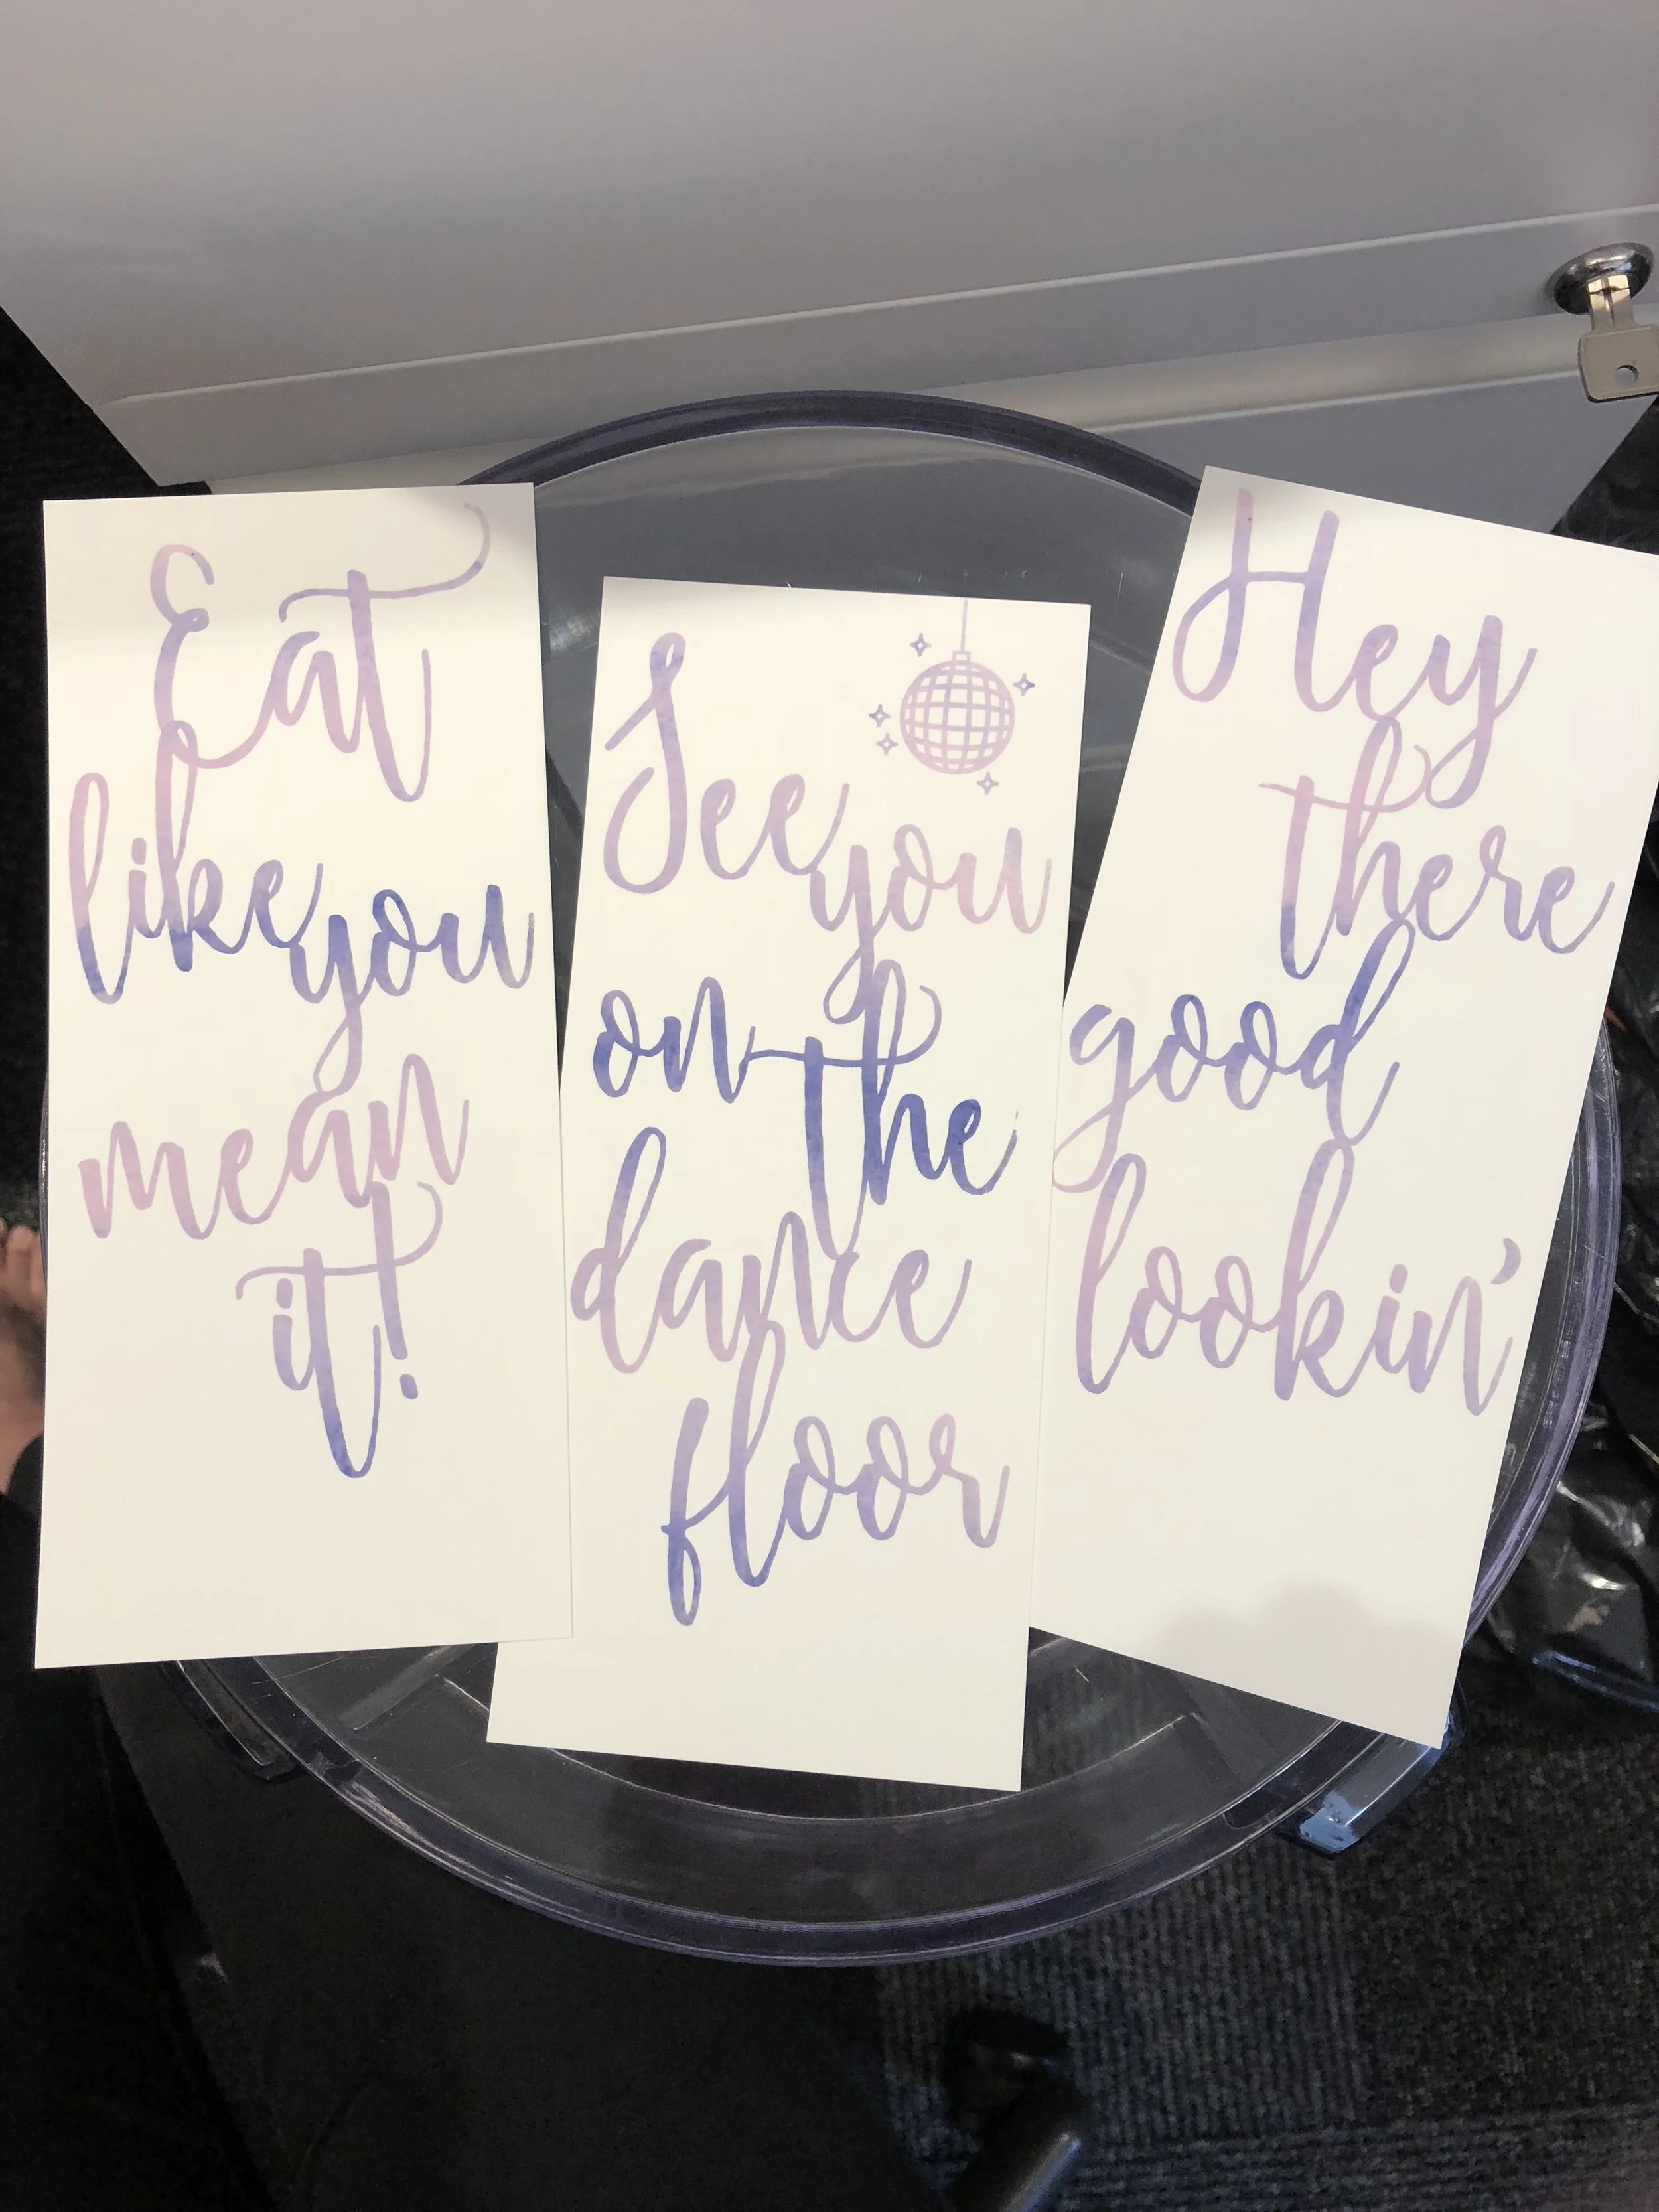 Eat
like you
mean
it!
See
you
on the
dance
floor
Hey
there
good
lookin'